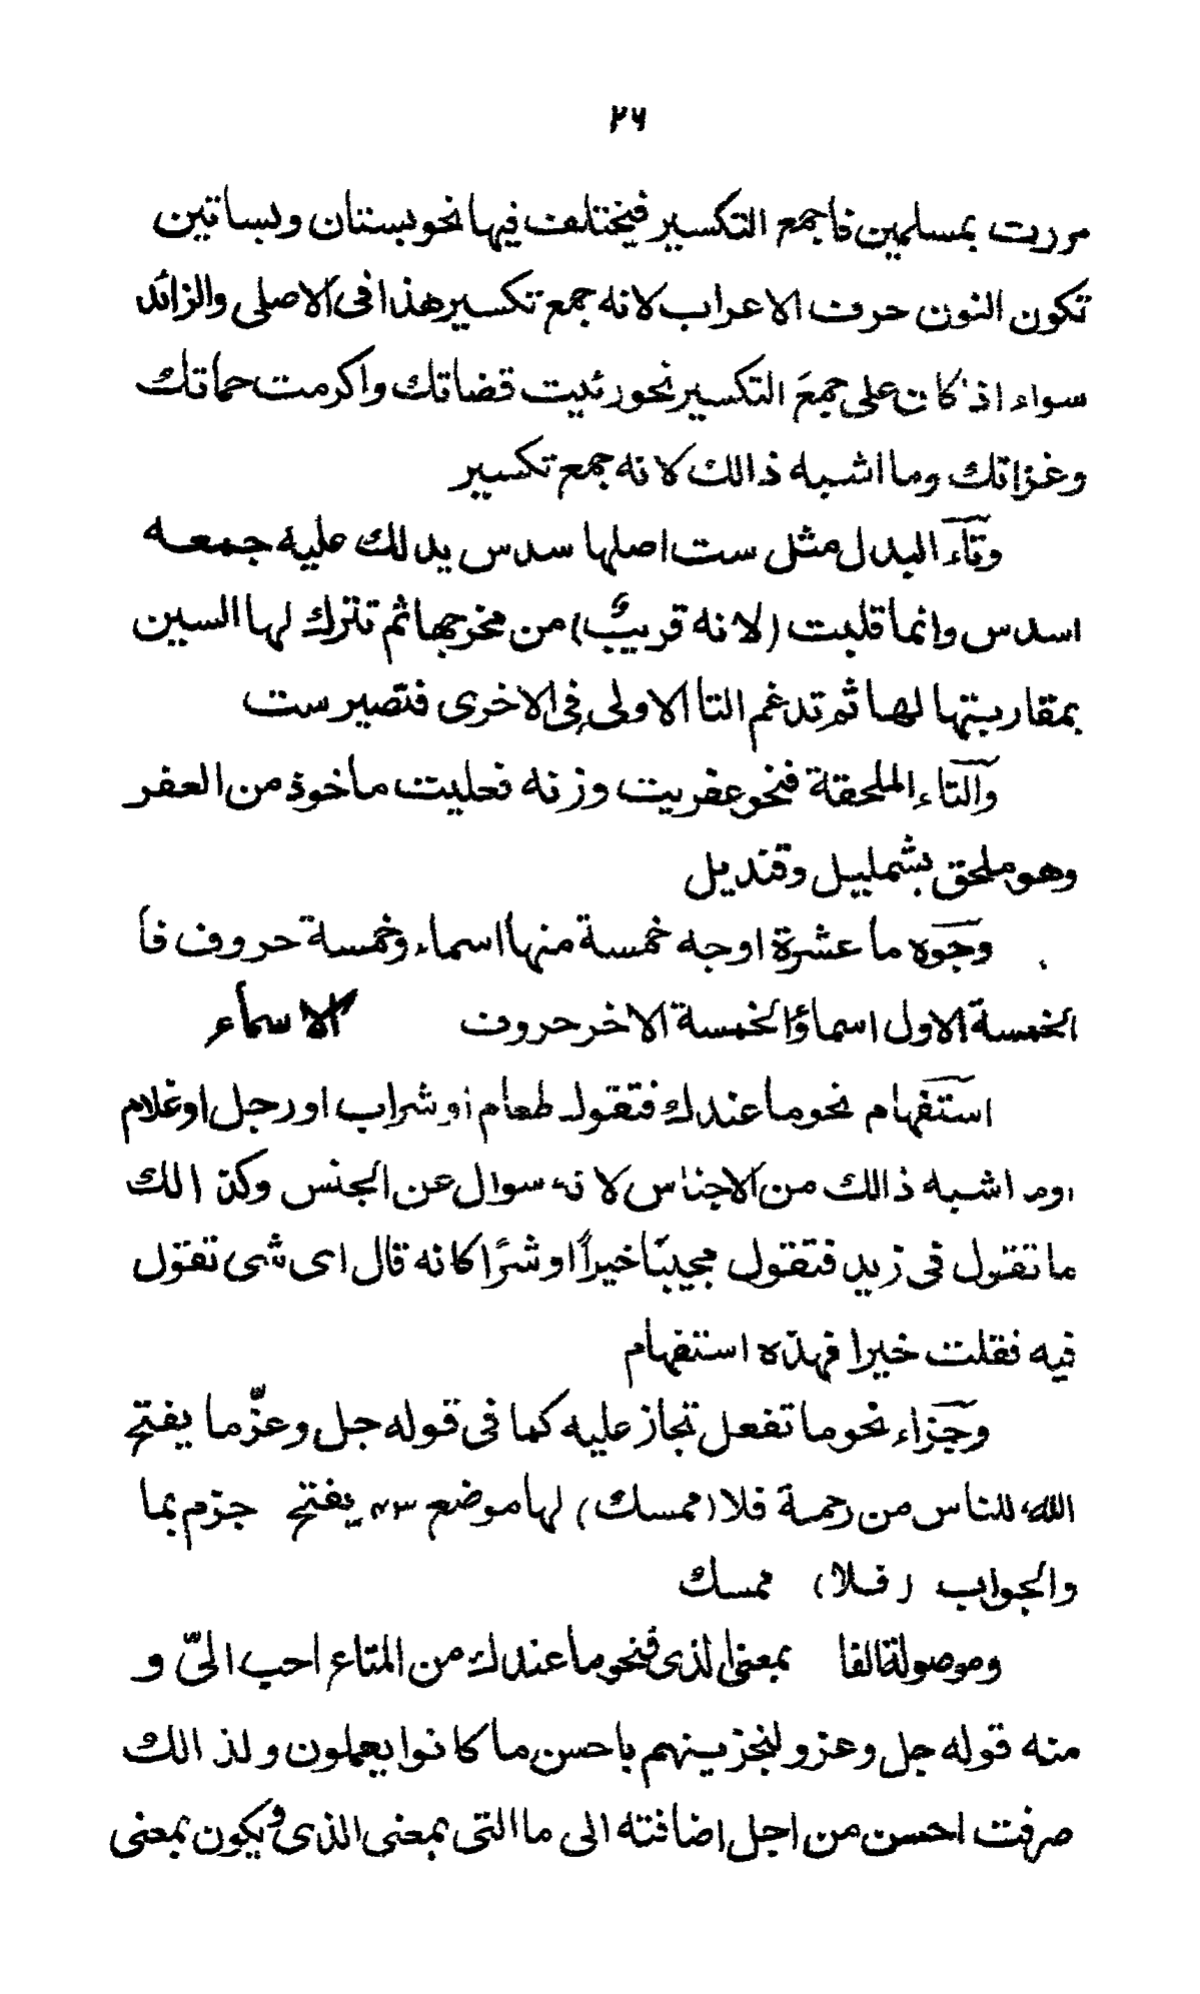 ٢٦
مررت بمسلمين فاجمع التكسير فيختلف فيها نحو بستان وبساتين
تكون النون حرف الاعراب لانه جمع تكسير هذا فى الاصلى والزائد
سواء اذ كان على جمعَ التكسير نحور ئيت قضاتك واكرمت حماتك
وغزاتك وما اشبه ذالك لانه جمع تكسير
وتآء البدل مثل ست اصلها سدس يدلك عليه جمعه
اسدس وانما قلبت (لانه قريبٌ) من مخرجها ثم تترك لها السين
بمقاربتها لها ثم تدغم التا الاولى فى الاخرى فتصير ست
والتاء الملحقة فنحو عفريت وزنه فعليت ماخوذ من العفر
وهو ملحق بشمليل وقنديل
وجوه ما عشرة اوجه خمسة منها اسماء وخمسة حروف فا
الخمسة الاول اسماؤ الخمسة الاخر حروف الاسماء
استفهام نحو ما عندك فتقول طعام او شراب او رجل او غلام
اوما اشبه ذالك من الاجناس لانه سوال عن الجنس وكذالك
ما تقول فى زيد فتقول مجيبًا خيراً او شرًا كانه قال اى شى تقول
فيه فقلت خيرا فهذه استفهام
وجزاء نحو ما تفعل تجاز عليه كما فى قوله جل وعزّ ما يفتح
الله للناس من رحمة فلا (ممسك) لها موضع يفتح جزم بما
والجواب (فلا) ممسك
وموصولة الفا بمعنى الذى فنحو ما عندك من المتاع احب الىّ و
منه قوله جل وعز ولنجزينهم باحسن ما كانوا يعملون ولذالك
صرفت احسن من اجل اضافته الى ما التى بمعنى الذى ويكون بمعنى